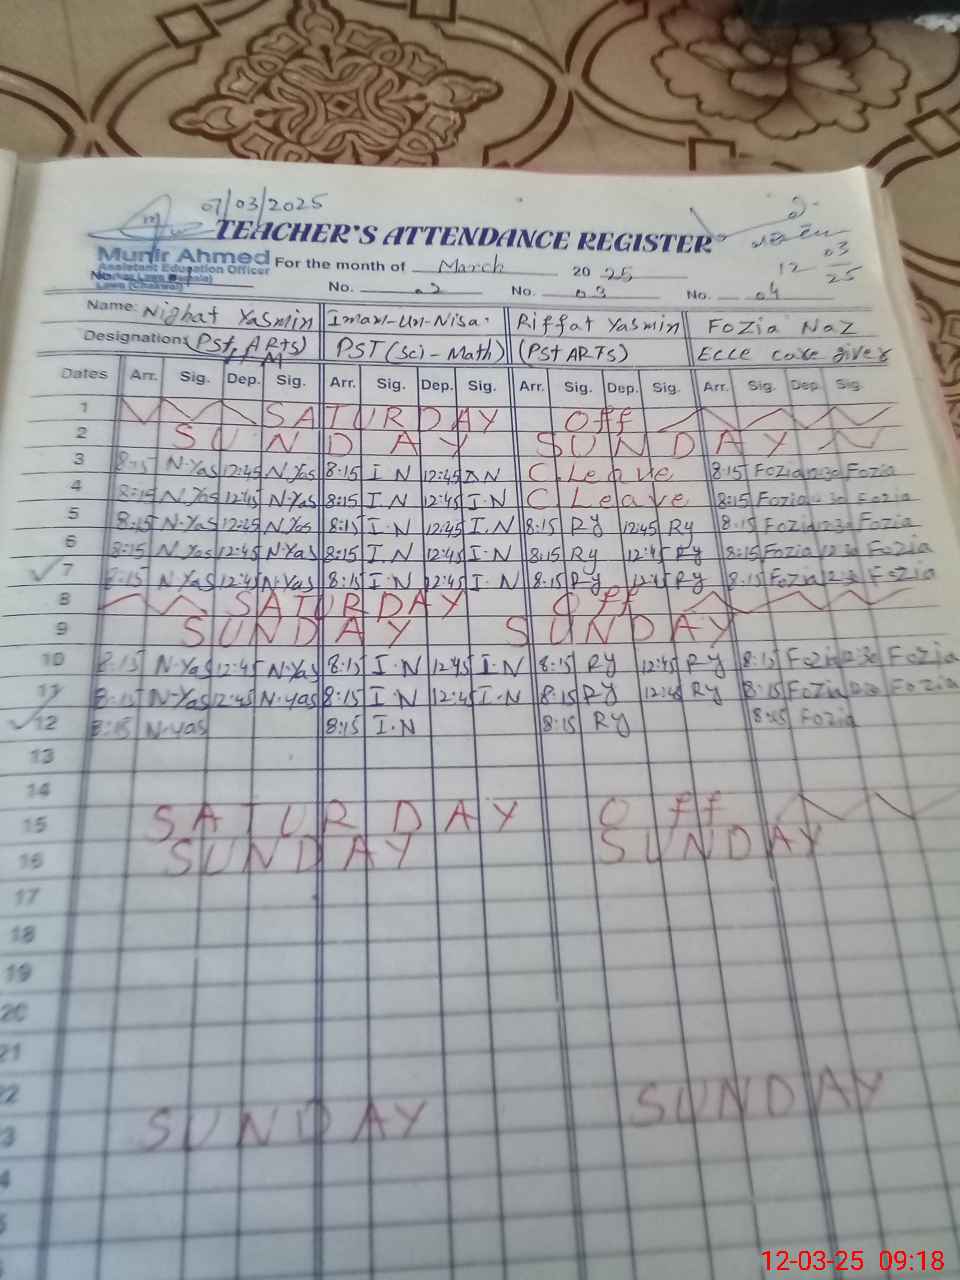 07/03/2025
TEACHER'S ATTENDANCE REGISTER
Munir Ahmed
Assistant Education Officer
03
For the month of March 2025
12
25
No. 02 No. 03 No. 04
Name: Nighat Yasmin Iman-Un-Nisa. Riffat Yasmin Fozia Naz
Designation: (Pst, ARTS) PST (Sci-Math) (Pst ARTS) Ecce care giver
Dates Arr. Sig. Dep. Sig. Arr. Sig. Dep. Sig. Arr. Sig. Dep. Sig. Arr. Sig. Dep. Sig.
1 SATURDAY Off
2 SUNDAY SUNDAY
3 8:15 N.Yas 12:45 N.Yas 8:15 I.N 12:45 I.N C Leave 8:15 Fozia 12:30 Fozia
4 8:15 N.Yas 12:45 N.Yas 8:15 I.N 12:45 I.N C Leave 8:15 Fozia Fozia
5 8:15 N.Yas 12:45 N.Yas 8:15 I.N 12:45 I.N 8:15 Ry 12:45 Ry 8:15 Fozia 12:30 Fozia
6 8:15 N.Yas 12:45 N.Yas 8:15 I.N 12:45 I.N 8:15 Ry 12:45 Ry 8:15 Fozia 12:30 Fozia
7 8:15 N.Yas 12:45 N.Yas 8:15 I.N 12:45 I.N 8:15 Ry 12:45 Ry 8:15 Fozia 12:30 Fozia
8 SATURDAY Off
9 SUNDAY SUNDAY
10 8:15 N.Yas 12:45 N.Yas 8:15 I.N 12:45 I.N 8:15 Ry 12:45 Ry 8:15 Fozia 12:30 Fozia
11 8:15 N.Yas 12:45 N.yas 8:15 I.N 12:45 I.N 8:15 Ry 12:45 Ry 8:15 Fozia 12:30 Fozia
12 8:15 N.yas 8:15 I.N 8:15 Ry 8:15 Fozia
13
14
15 SATURDAY Off
16 SUNDAY SUNDAY
17
18
19
20
21
22
23 SUNDAY SUNDAY
12-03-25 09:18